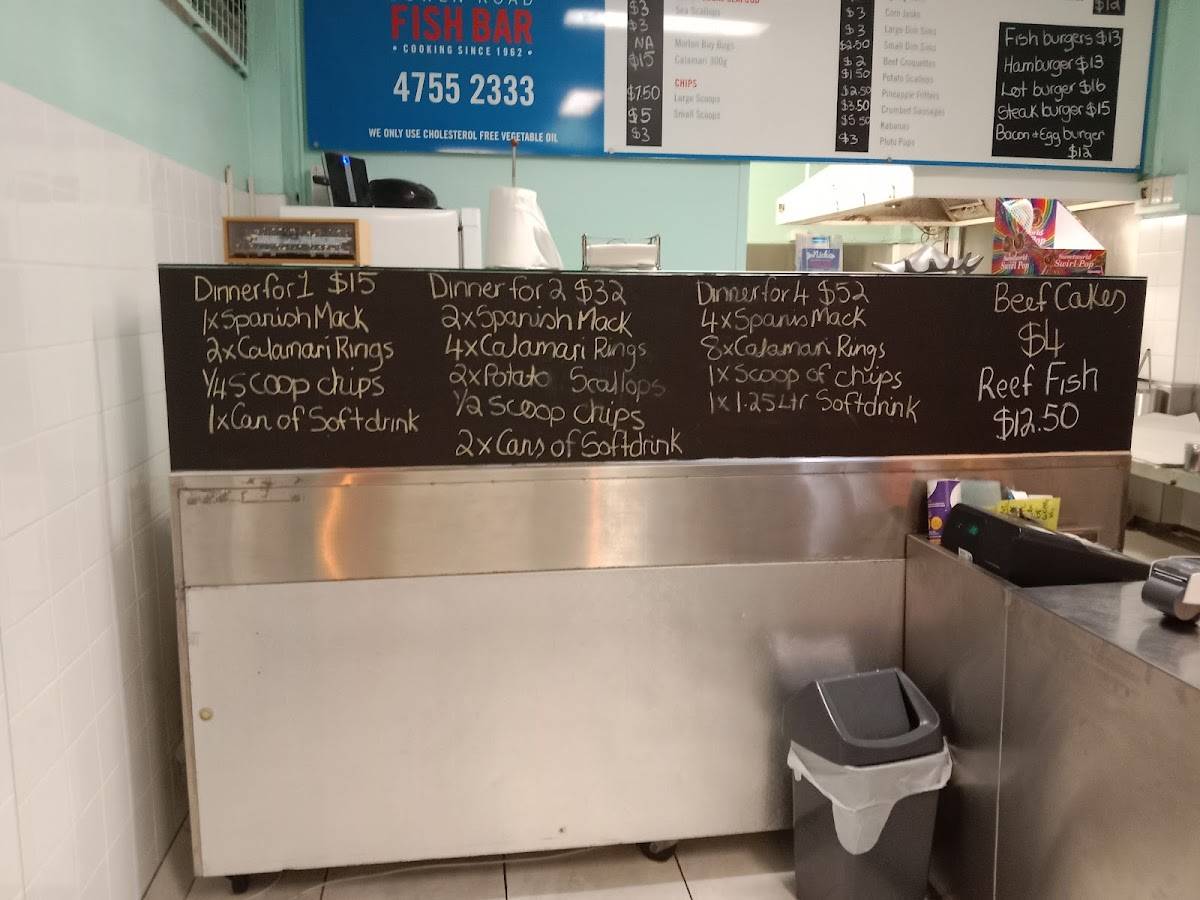 FISH BAR
• COOKING SINCE 1962 •
4755 2333
WE ONLY USE CHOLESTEROL FREE VEGETABLE OIL
$3
$3
NA
$15
$7.50
$5
$3
Sea Scallops
Moreton Bay Bugs
Calamari 300g
CHIPS
Large Scoops
Small Scoops
$3
$3
$2.50
$2
$1.50
$2.50
$3.50
$5.50
$3
Corn Jacks
Large Dim Sims
Small Dim Sims
Beef Croquettes
Potato Scallops
Pineapple Fritters
Crumbed Sausages
Kabanas
Pluto Pups
Fish burgers $13
Hamburger $13
Lot burger $16
Steak burger $15
Bacon + Egg burger
$12
Swirl Pop
Dinner for 1 $15
1xSpanish Mack
2xCalamari Rings
1/4 Scoop chips
1xCan of Softdrink
Dinner for 2 $32
2xSpanish Mack
4xCalamari Rings
2xPotato Scallops
1/2 Scoop chips
2xCans of Softdrink
Dinner for 4 $52
4xSpanis Mack
8xCalamari Rings
1xScoop of chips
1x1.25Ltr Softdrink
Beef Cakes
$4
Reef Fish
$12.50